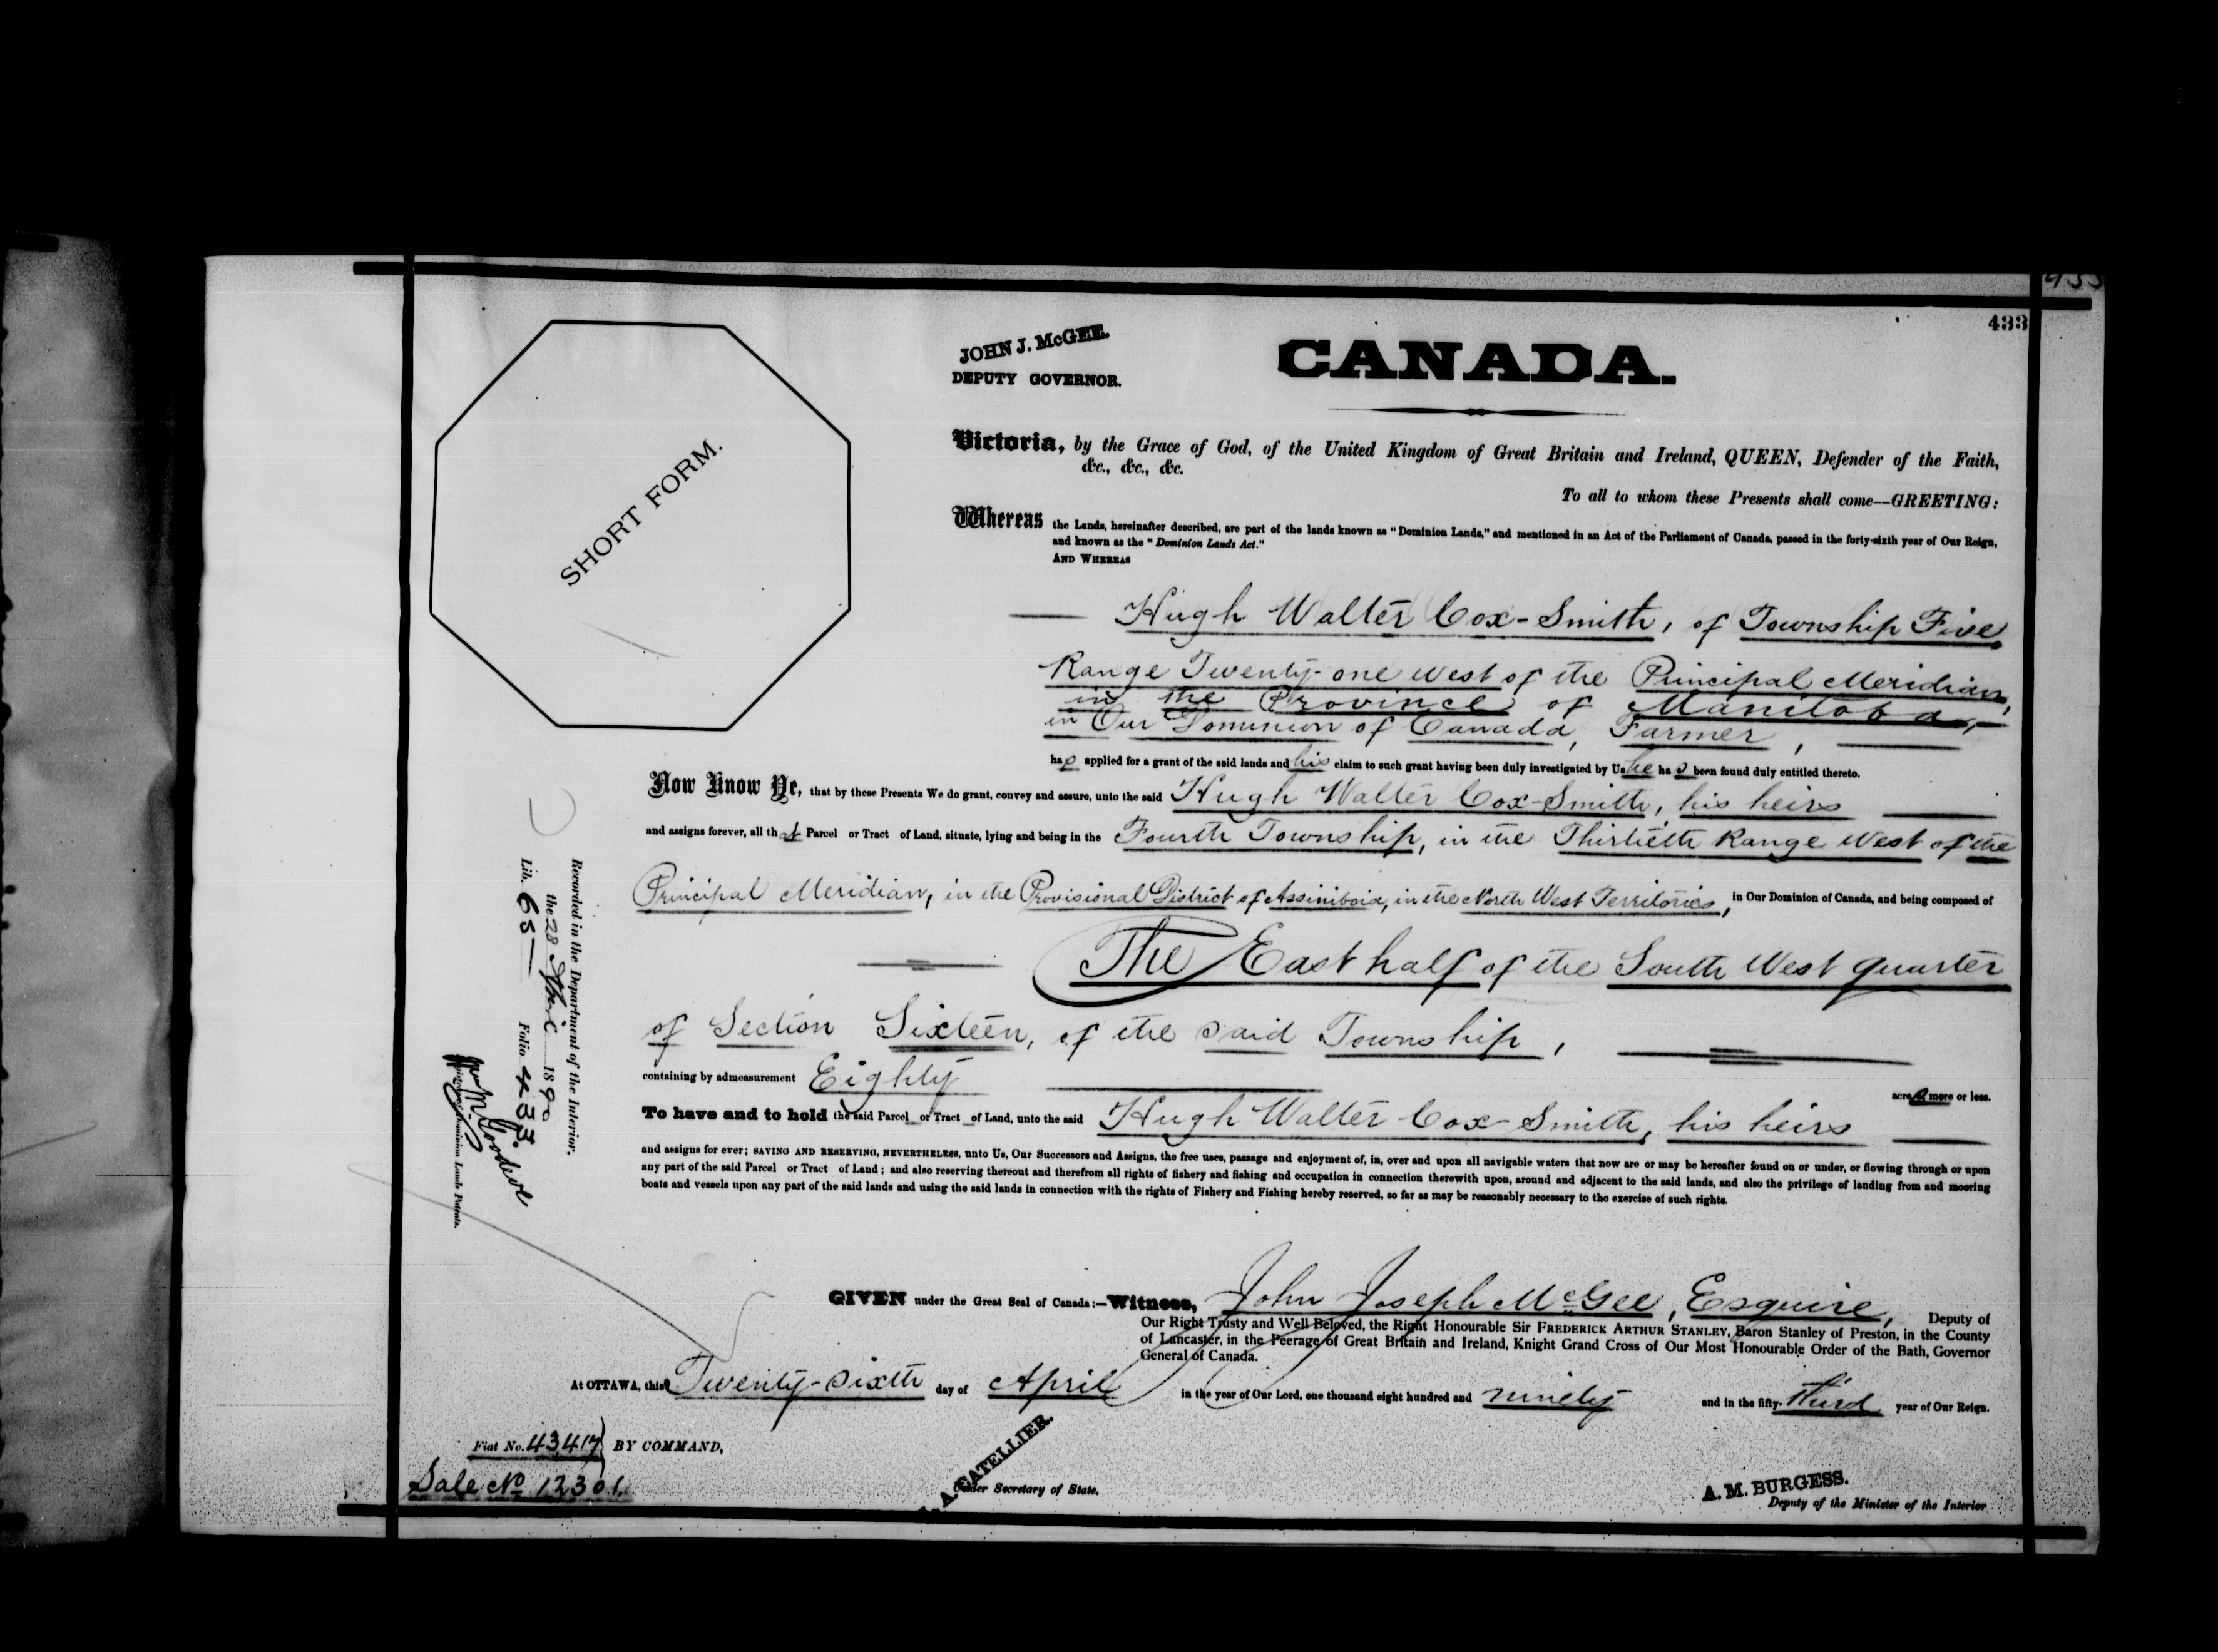 433
JOHN J. McGEE.
DEPUTY GOVERNOR.
CANADA.
SHORT FORM.
Victoria, by the Grace of God, of the United Kingdom of Great Britain and Ireland, QUEEN, Defender of the Faith,
&c., &c., &c.
To all to whom these Presents shall come—GREETING:
Whereas the Lands, hereinafter described, are part of the lands known as "Dominion Lands," and mentioned in an Act of the Parliament of Canada, passed in the forty-sixth year of Our Reign,
and known as the "Dominion Lands Act."
AND WHEREAS
Hugh Walter Cox-Smith, of Township Five
Range Twenty-one West of the Principal Meridian,
in the Province of Manitoba,
in Our Dominion of Canada, Farmer,
has applied for a grant of the said lands and his claim to such grant having been duly investigated by Us he has been found duly entitled thereto.
Now Know Ye, that by these Presents We do grant, convey and assure, unto the said Hugh Walter Cox-Smith, his heirs
and assigns forever, all that Parcel or Tract of Land, situate, lying and being in the Fourth Township, in the Thirtieth Range West of the
Principal Meridian, in the Provisional District of Assiniboia, in the North West Territories, in Our Dominion of Canada, and being composed of
The East half of the South West quarter
of Section Sixteen, of the said Township,
containing by admeasurement Eighty acres more or less.
To have and to hold the said Parcel or Tract of Land, unto the said Hugh Walter Cox-Smith, his heirs
and assigns for ever; SAVING AND RESERVING, NEVERTHELESS, unto Us, Our Successors and Assigns, the free uses, passage and enjoyment of, in, over and upon all navigable waters that now are or may be hereafter found on or under, or flowing through or upon
any part of the said Parcel or Tract of Land; and also reserving thereout and therefrom all rights of fishery and fishing and occupation in connection therewith upon, around and adjacent to the said lands, and also the privilege of landing from and mooring
boats and vessels upon any part of the said lands and using the said lands in connection with the rights of Fishery and Fishing hereby reserved, so far as may be reasonably necessary to the exercise of such rights.
GIVEN under the Great Seal of Canada:—Witness, John Joseph McGee, Esquire, Deputy of
Our Right Trusty and Well Beloved, the Right Honourable Sir FREDERICK ARTHUR STANLEY, Baron Stanley of Preston, in the County
of Lancaster, in the Peerage of Great Britain and Ireland, Knight Grand Cross of Our Most Honourable Order of the Bath, Governor
General of Canada.
At OTTAWA, this Twenty-sixth day of April in the year of Our Lord, one thousand eight hundred and ninety and in the fifty-third year of Our Reign.
Fiat No. 43417 BY COMMAND,
Sale No 12301.
L. A. CATELLIER.
Under Secretary of State.
A. M. BURGESS.
Deputy of the Minister of the Interior
Recorded in the Department of the Interior.
the 28 April 1890
Lib. 65 Folio 433.
Dominion Lands Patents.